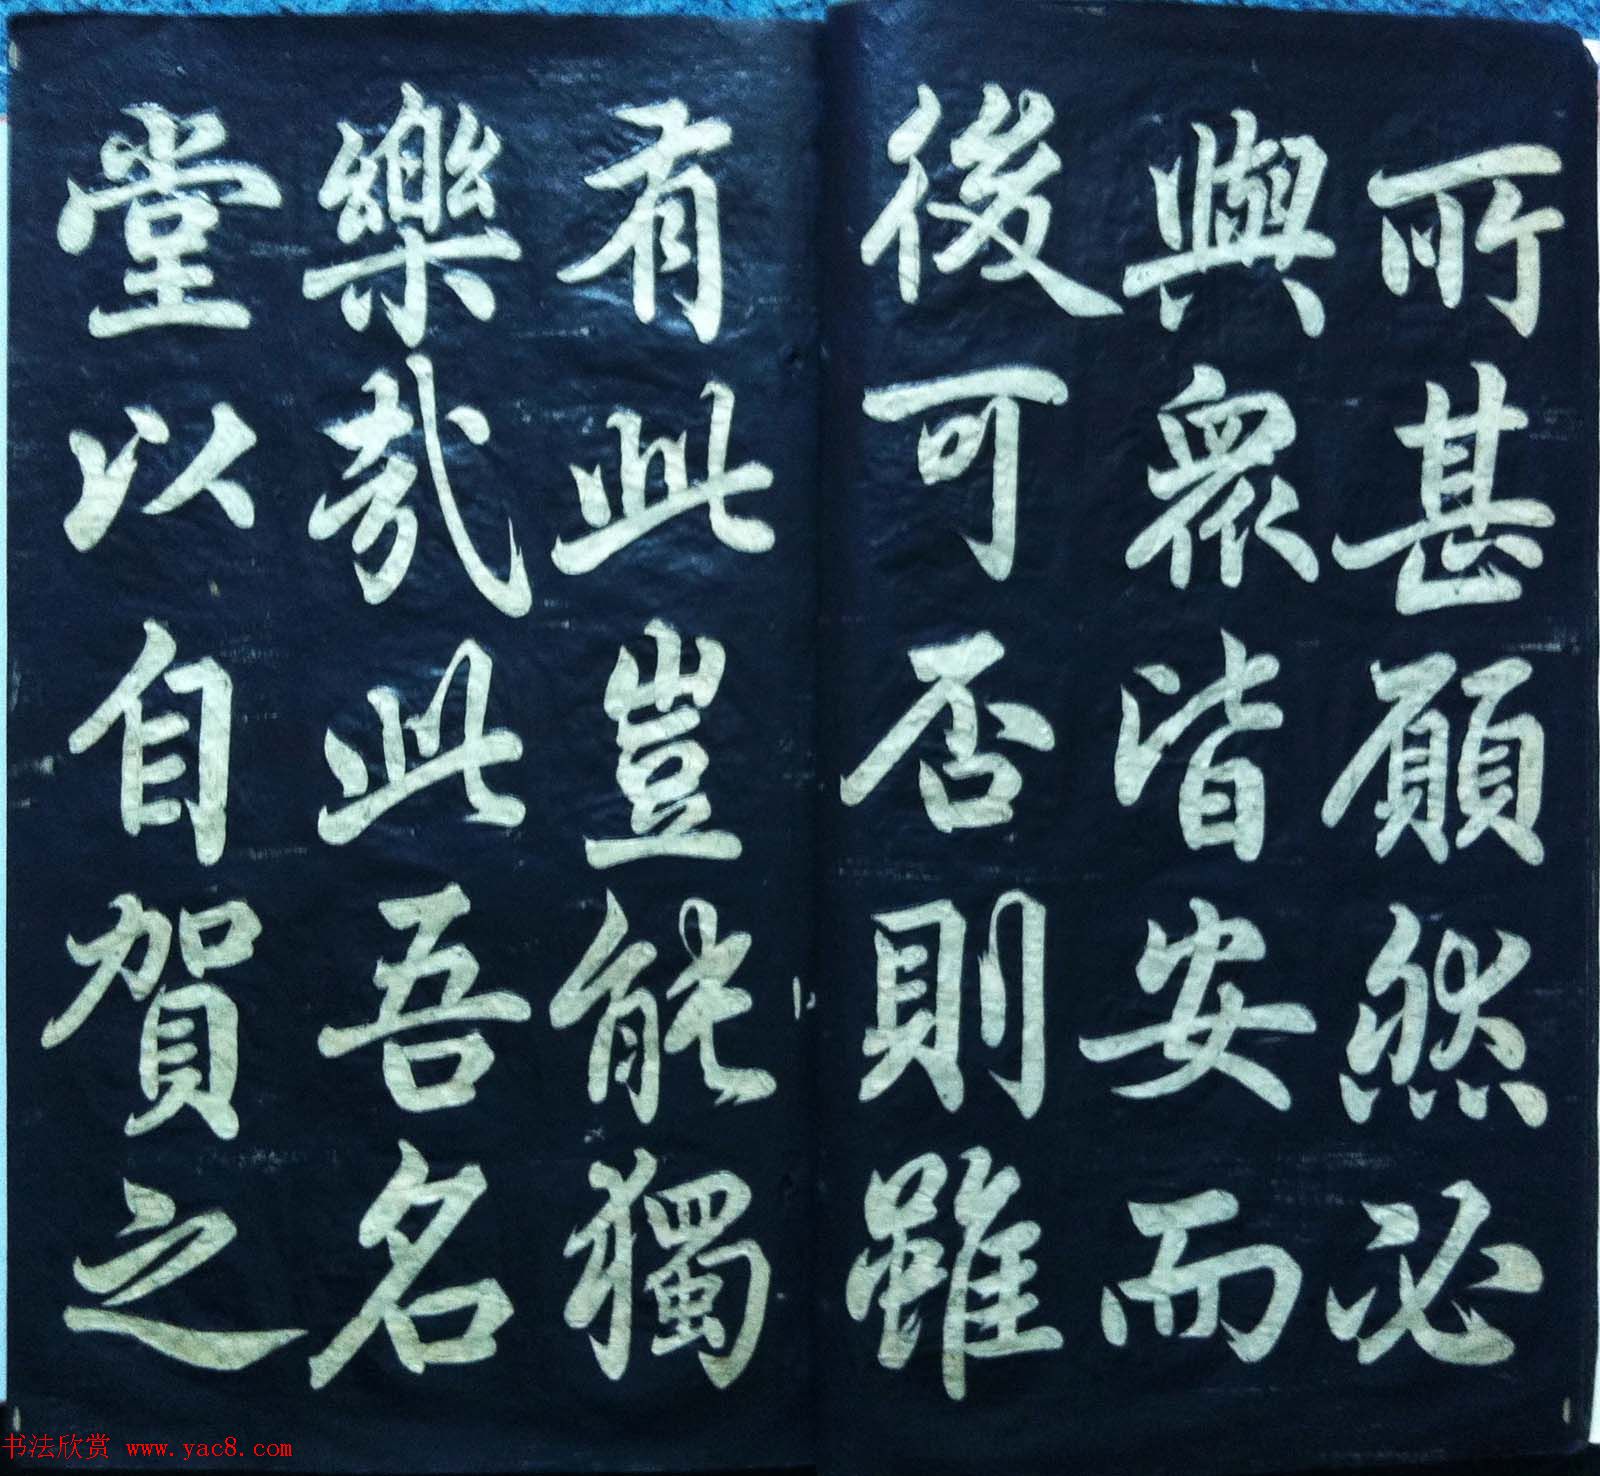 所甚願然必
與衆皆安而
後可否則雖
有此豈能獨
樂哉此吾名
堂以自賀之
书法欣赏 www.yac8.com